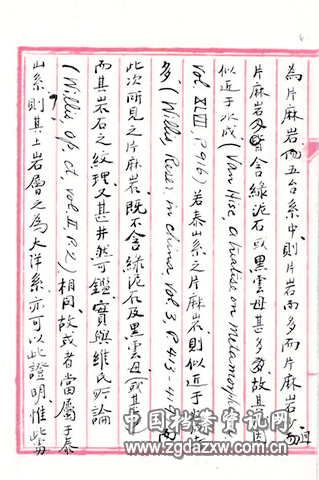 為片麻岩而五台系中則片岩而多而片麻岩
片麻岩及皆含綠泥石或黑雲母甚多故其原因
似近于水成(Van Hise, a treatise on metamorph
vol. XLVII, P.916)若泰山系之片麻岩則似近于
多(Willis, Res. in china, Vol. 3, P.413-4
此次所見之片麻岩既不含綠泥石及黑雲母
而其岩石之紋理又甚井然可鑑實與維氏所論
(Willis, op. ct. vol. II P.2.)相同故或者當屬于泰
山系則其上岩層之為大洋系亦可以此證明惟此
中国档案资讯网
www.zgdazxw.com.cn